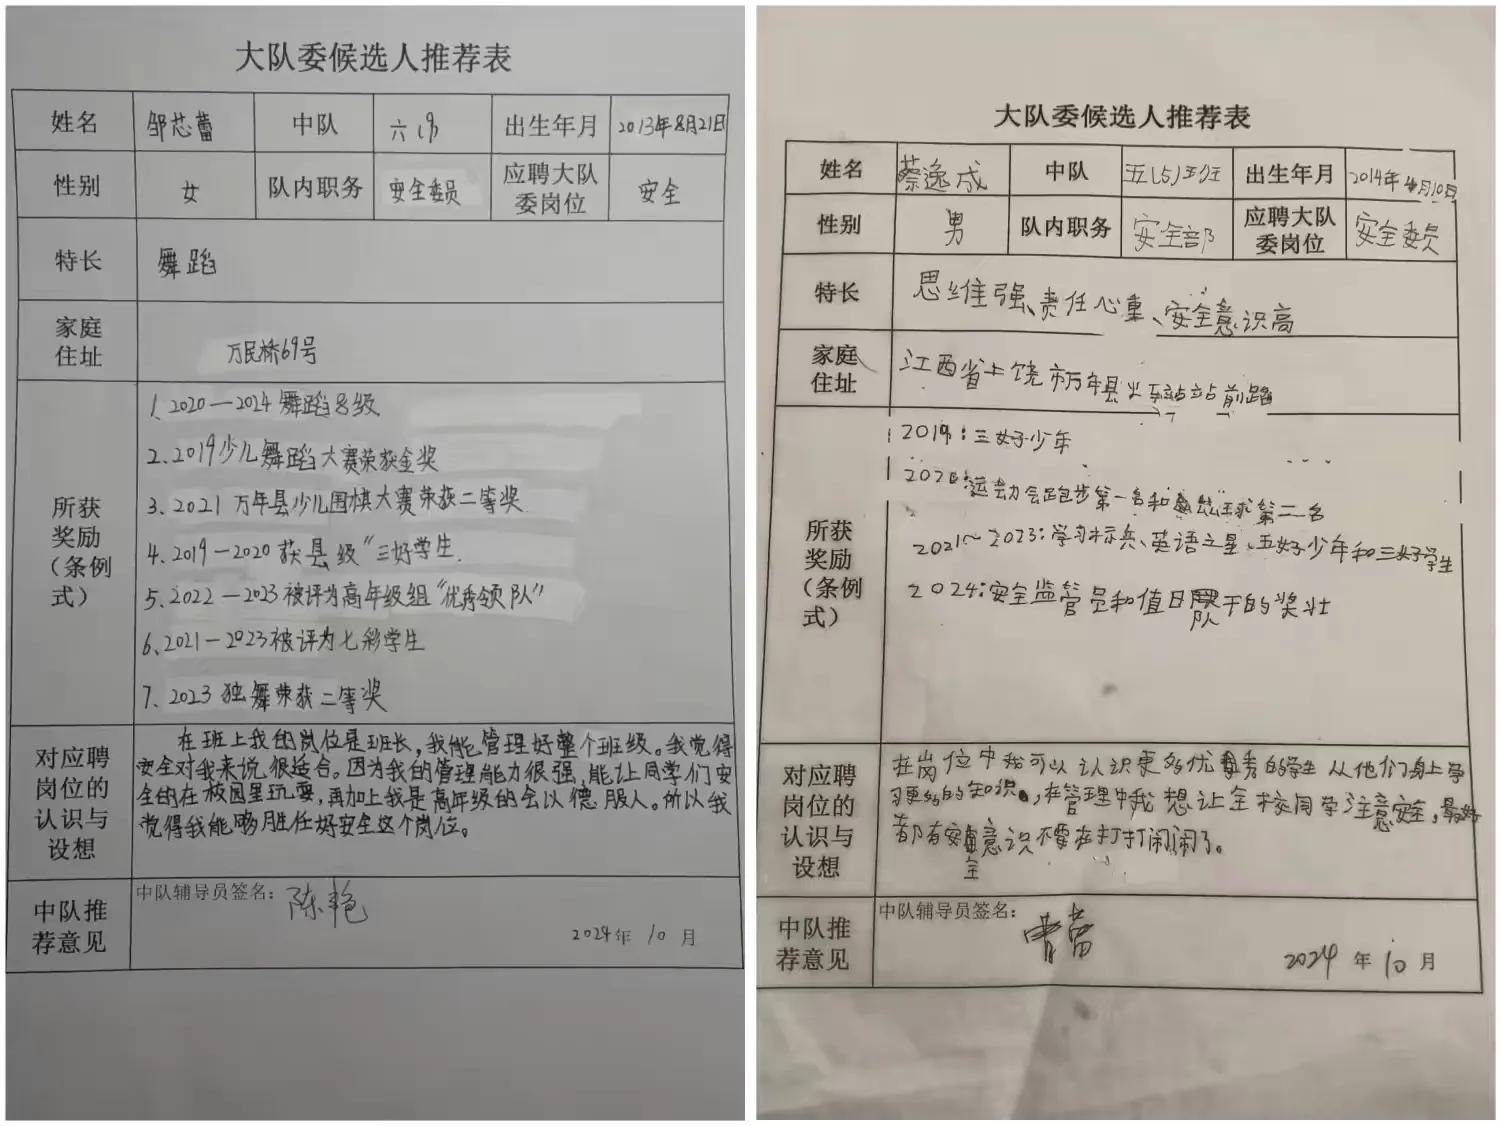 大队委候选人推荐表
姓名 邹芯蕾 中队 六 出生年月 2013年8月21日
性别 女 队内职务 安全委员 应聘大队委岗位 安全
特长 舞蹈
家庭住址 万民桥69号
所获奖励（条例式）
1、2020—2024 舞蹈8级
2、2019少儿舞蹈大赛荣获金奖
3、2021 万年县少儿围棋大赛荣获二等奖
4、2019—2020 获县级“三好学生.
5、2022—2023被评为高年级组“优秀领队”
6、2021—2023被评为七彩学生
7、2023 独舞荣获二等奖
对应聘岗位的认识与设想
在班上我的岗位是班长，我能管理好整个班级。我觉得
安全对我来说很适合。因为我的管理能力很强，能让同学们安
全的在校园里玩耍，再加上我是高年级的会以德服人。所以我
觉得我能够胜任好安全这个岗位。
中队推荐意见
中队辅导员签名：陈艳
2024年 10 月
大队委候选人推荐表
姓名 蔡逸成 中队 五(5)班 出生年月 2014年 月10日
性别 男 队内职务 安全部 应聘大队委岗位 安全委员
特长 思维强、责任心重、安全意识高
家庭住址 江西省上饶市万年县火车站站前路
所获奖励（条例式）
2019：三好少年
2020：运动会跑步第一名和 球第二名
2021~2023：学习标兵、英语之星、五好少年和三好学生
2024：安全监管员和值日队干的奖状
对应聘岗位的认识与设想
在岗位中我可以认识更多优秀的学生 从他们身上学
习更多的知识，在管理中我想让全校同学注意安全，最好
都有安全意识不要在打打闹闹了。
中队推荐意见
中队辅导员签名：
2024 年 10 月